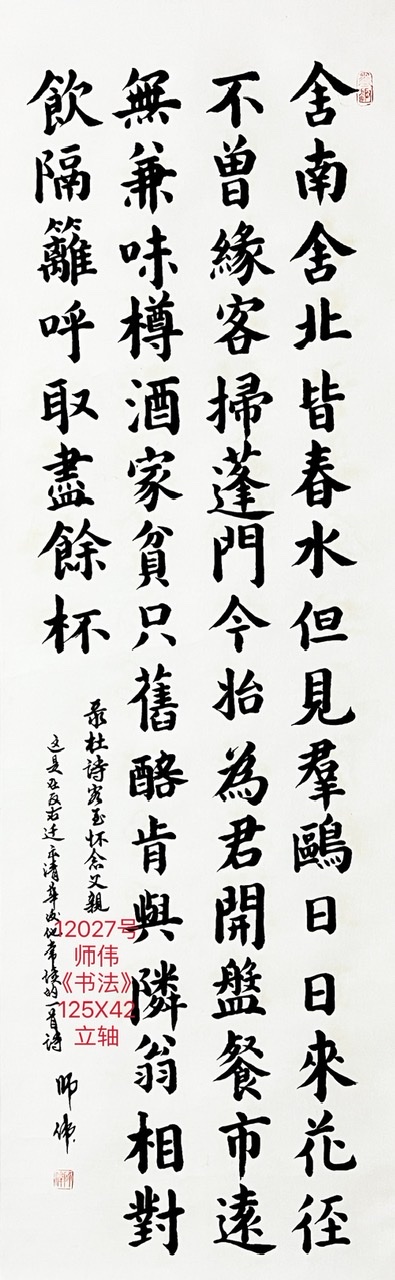 舍南舍北皆春水但見羣鷗日日來花径
不曾緣客掃蓬門今始為君開盤餐市遠
無兼味樽酒家貧只舊醅肯與隣翁相對
飲隔籬呼取盡餘杯
录杜詩客至怀念父親
这是反右迁清華他常读的一首詩
師偉
12027号
师伟
《书法》
125X42
立轴